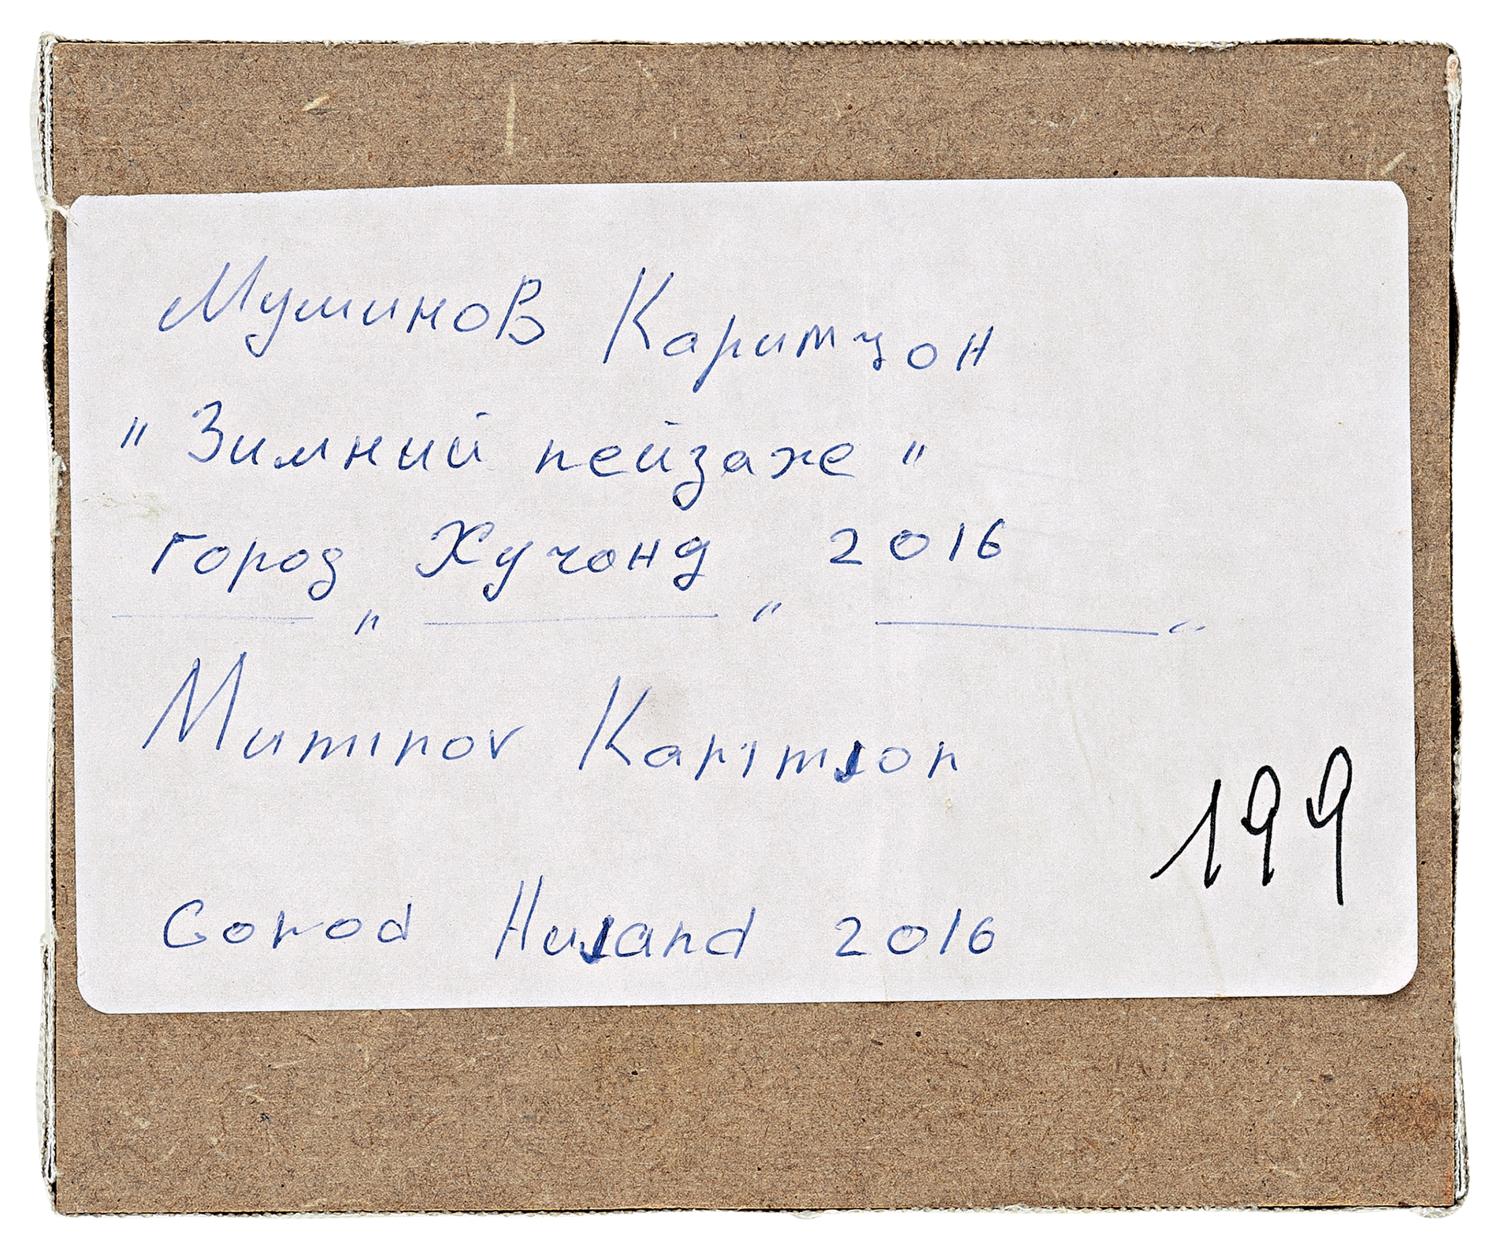 Муминов Каримчон
"Зимний пейзаже"
город Хучонд 2016
" " "
Muminov Karimjon
199
Gorod Hujand 2016